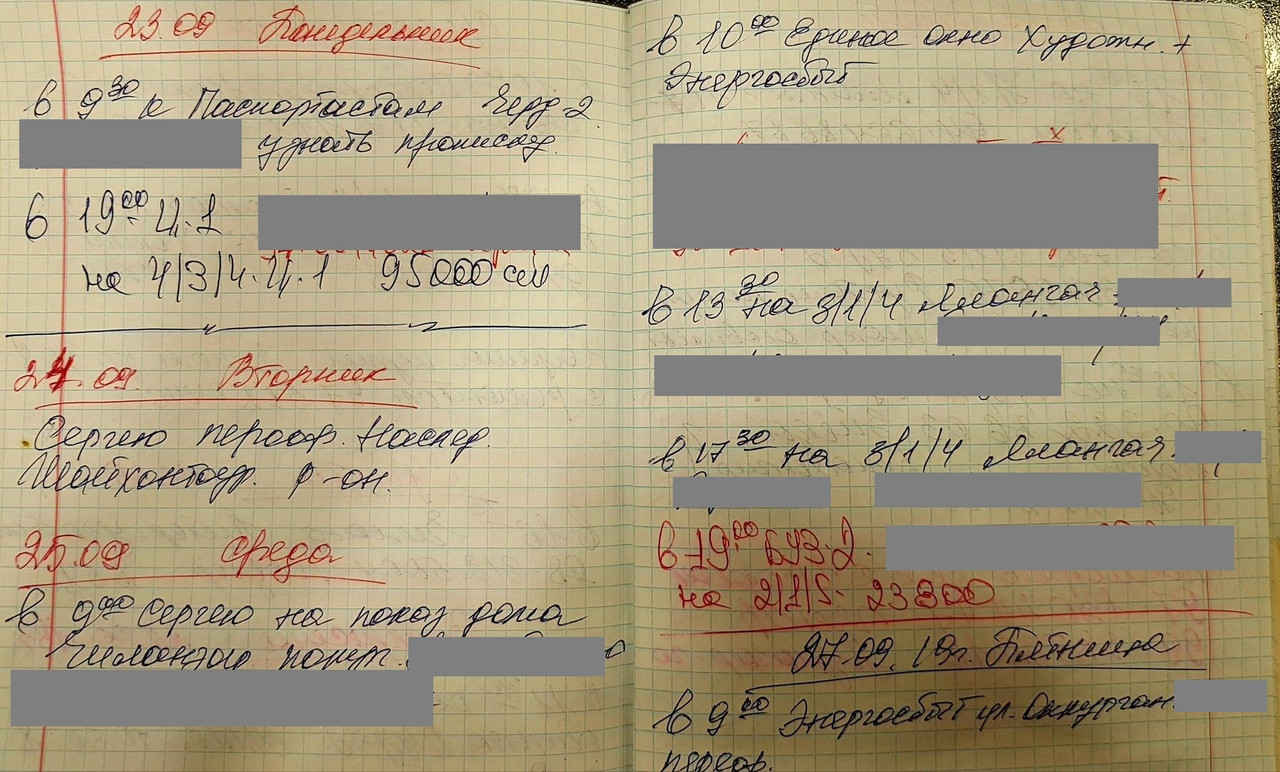 23.09 Понедельник
в 9³⁰ к Паспортистам Черд-2
узнать прописку.
в 19⁰⁰ Ц.1
на 4/3/4. Ц.1 95000
24.09. Вторник
Сергею переоф. Наслед.
Шайхонтоур. р-он.
25.09 среда
в 9⁰⁰ Сергею на показ дома
Чиланзар покуп.
в 10⁰⁰ Единое окно Художн. +
Энергосбыт
в 13³⁰ на 3/1/4 Ялангач.
в 17³⁰ на 3/1/4 Ялангач.
в 19⁰⁰ БУЗ-2.
на 2/1/5- 23800
27.09.19г. Пятница
в 9⁰⁰ Энергосбыт ул. Оккурган.
переоф.